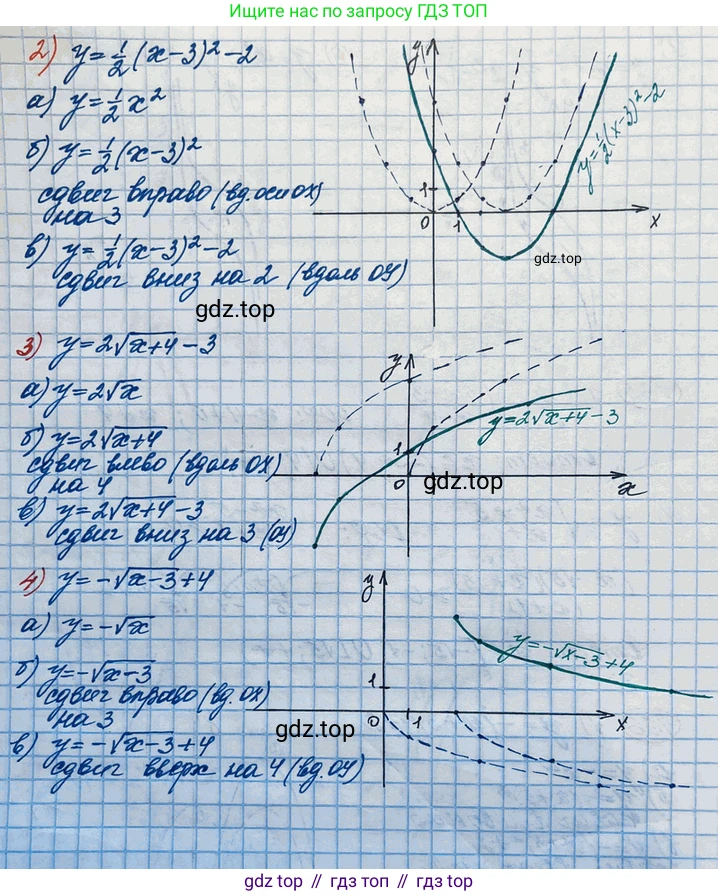 Ищите нас по запросу ГДЗ ТОП
2) y=½(x-3)²-2
а) y=½x²
б) y=½(x-3)²
сдвиг вправо (вд.оси OX)
на 3
в) y=½(x-3)²-2
сдвиг вниз на 2 (вдоль OY)
y
1
0
1
x
y=½(x-3)²-2
gdz.top
gdz.top
3) y=2√x+4-3
а) y=2√x
б) y=2√x+4
сдвиг влево (вдоль OX)
на 4
в) y=2√x+4-3
сдвиг вниз на 3 (OY)
y
1
0
x
y=2√x+4-3
gdz.top
4) y=-√x-3+4
а) y=-√x
б) y=-√x-3
сдвиг вправо (вд.OX)
на 3
в) y=-√x-3+4
сдвиг вверх на 4 (вд.OY)
y
1
0
1
x
y=-√x-3+4
gdz.top
gdz top // гдз топ // gdz top